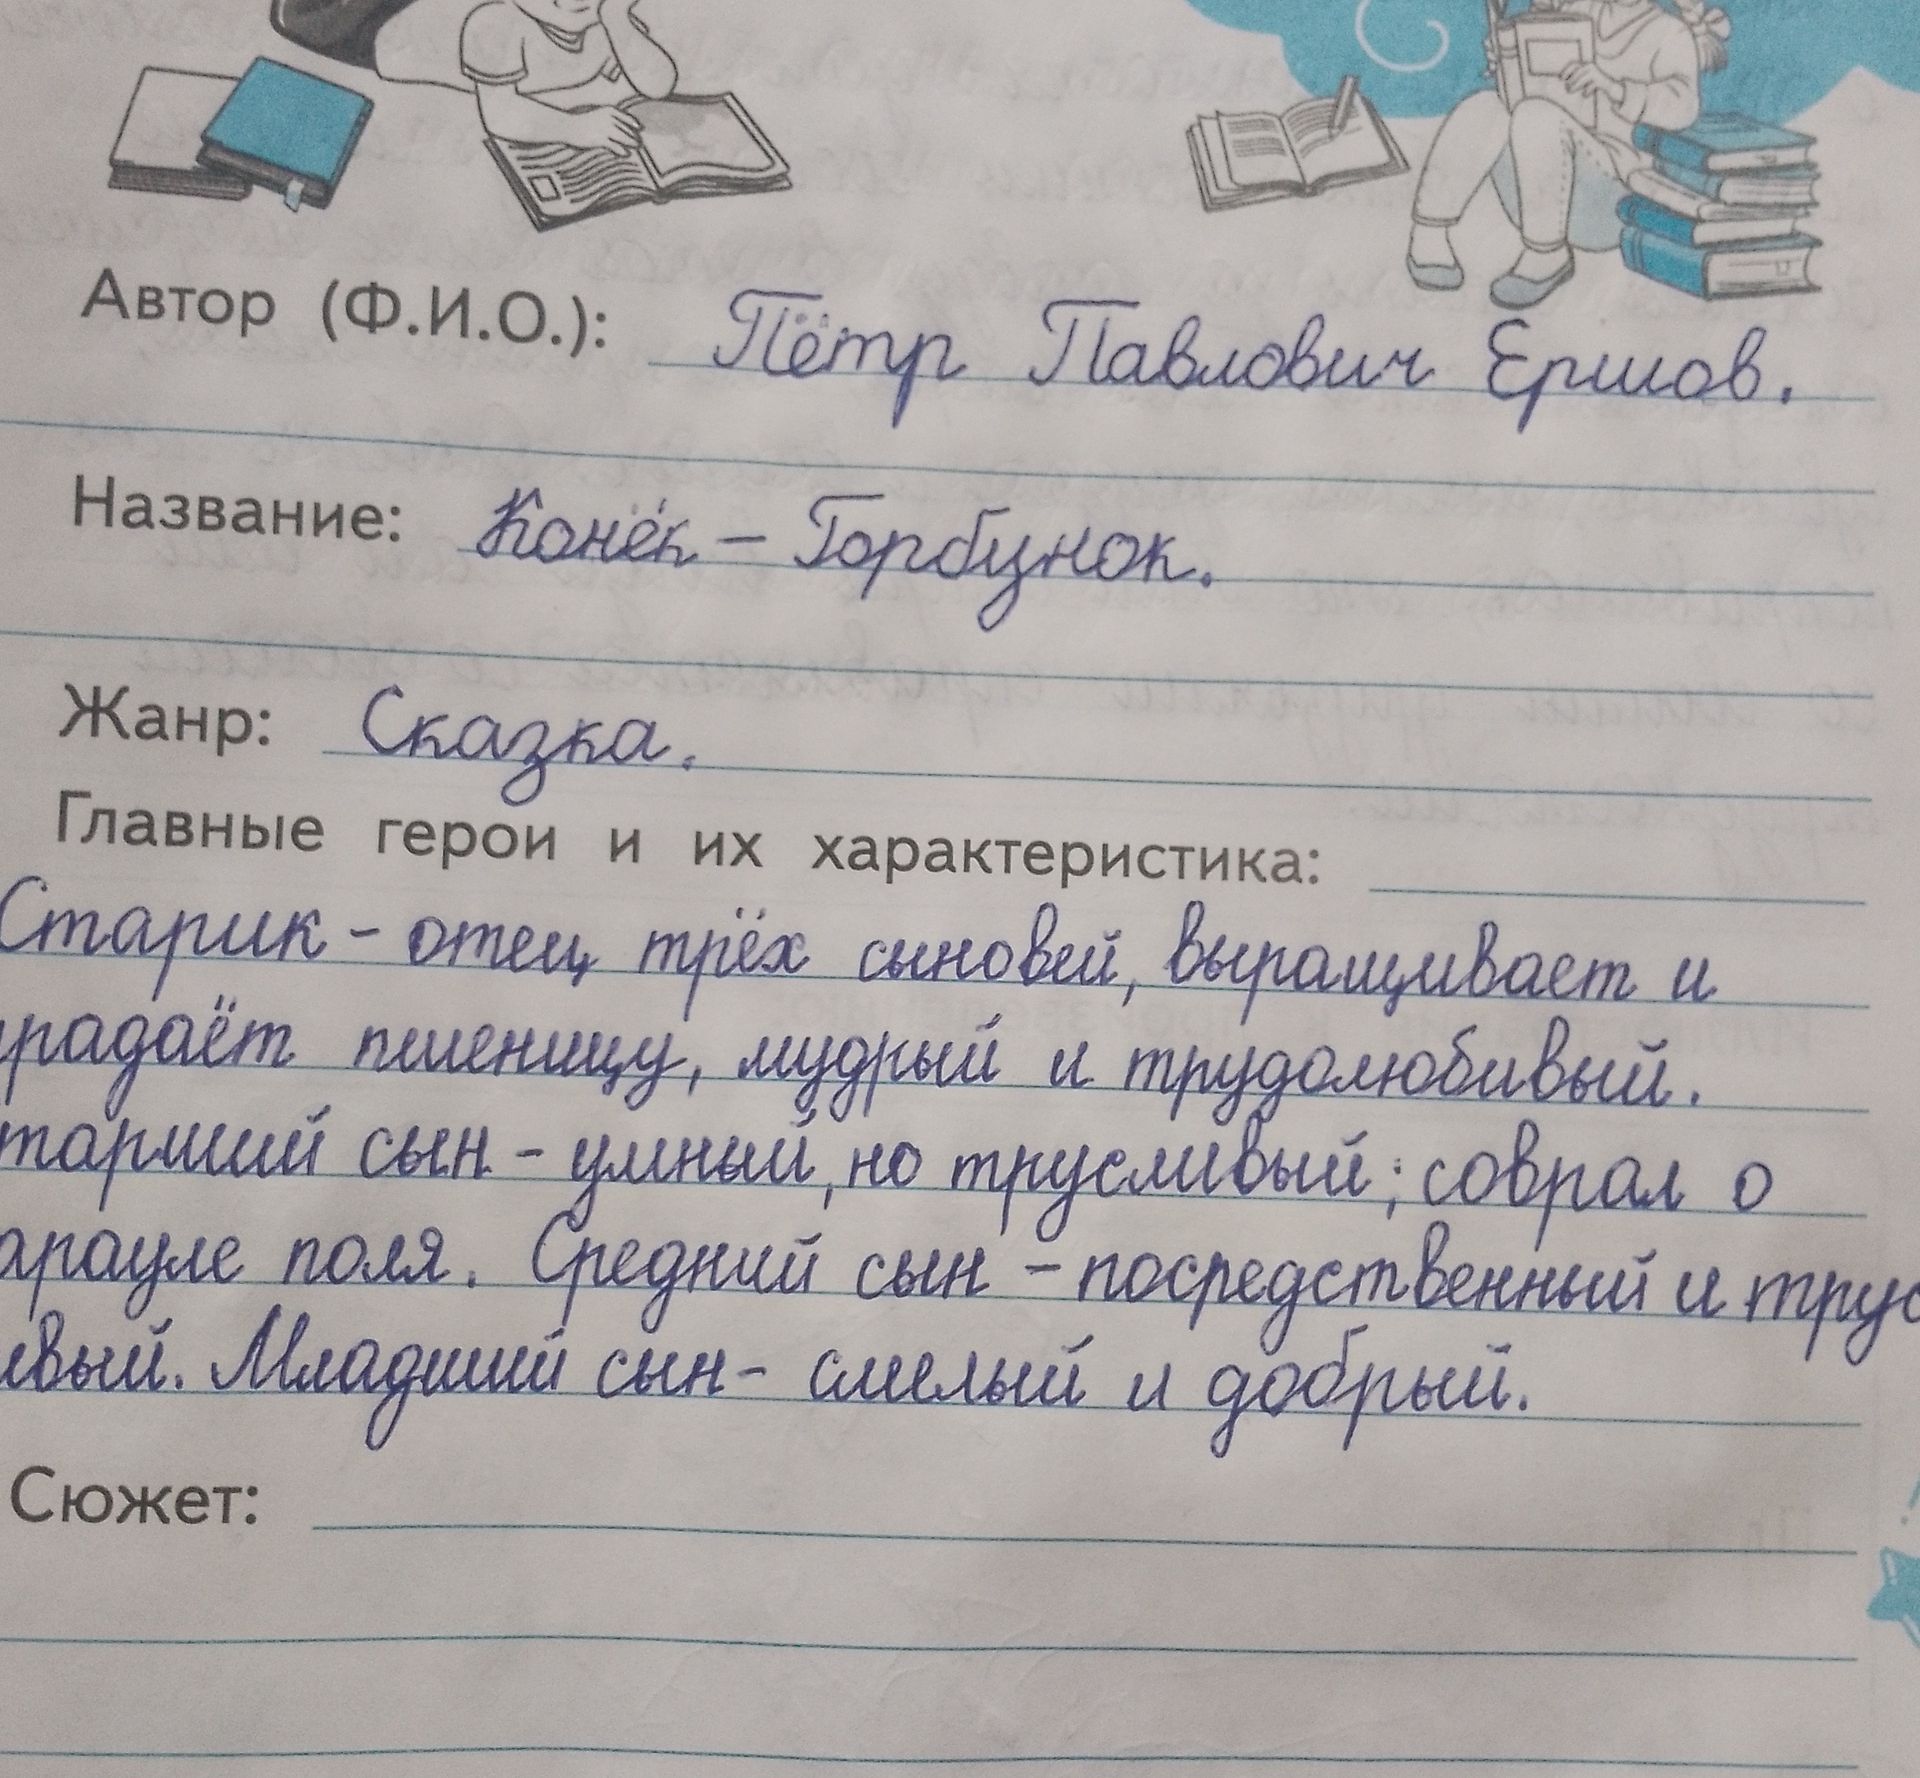 Автор (Ф.И.О.): Пётр Павлович Ершов.
Название: Конёк - Горбунок.
Жанр: Сказка.
Главные герои и их характеристика:
Старик - отец трёх сыновей, выращивает и
radаёт пшеницу, мудрый и трудолюбивый.
тарший сын - умный, но трусливый; соврал о
арауле поля. Средний сын - посредственный и трус
ивый. Младший сын - смелый и добрый.
Сюжет: